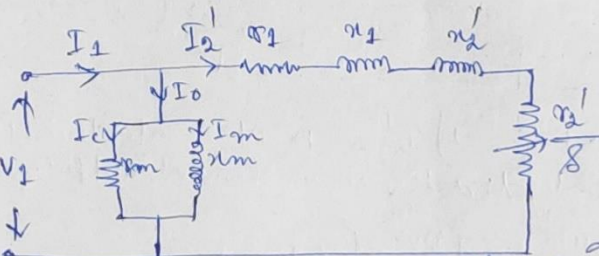 I1 I2' r1 x1 x2'
I0
Ic Im
V1 rm xm
r2'/s